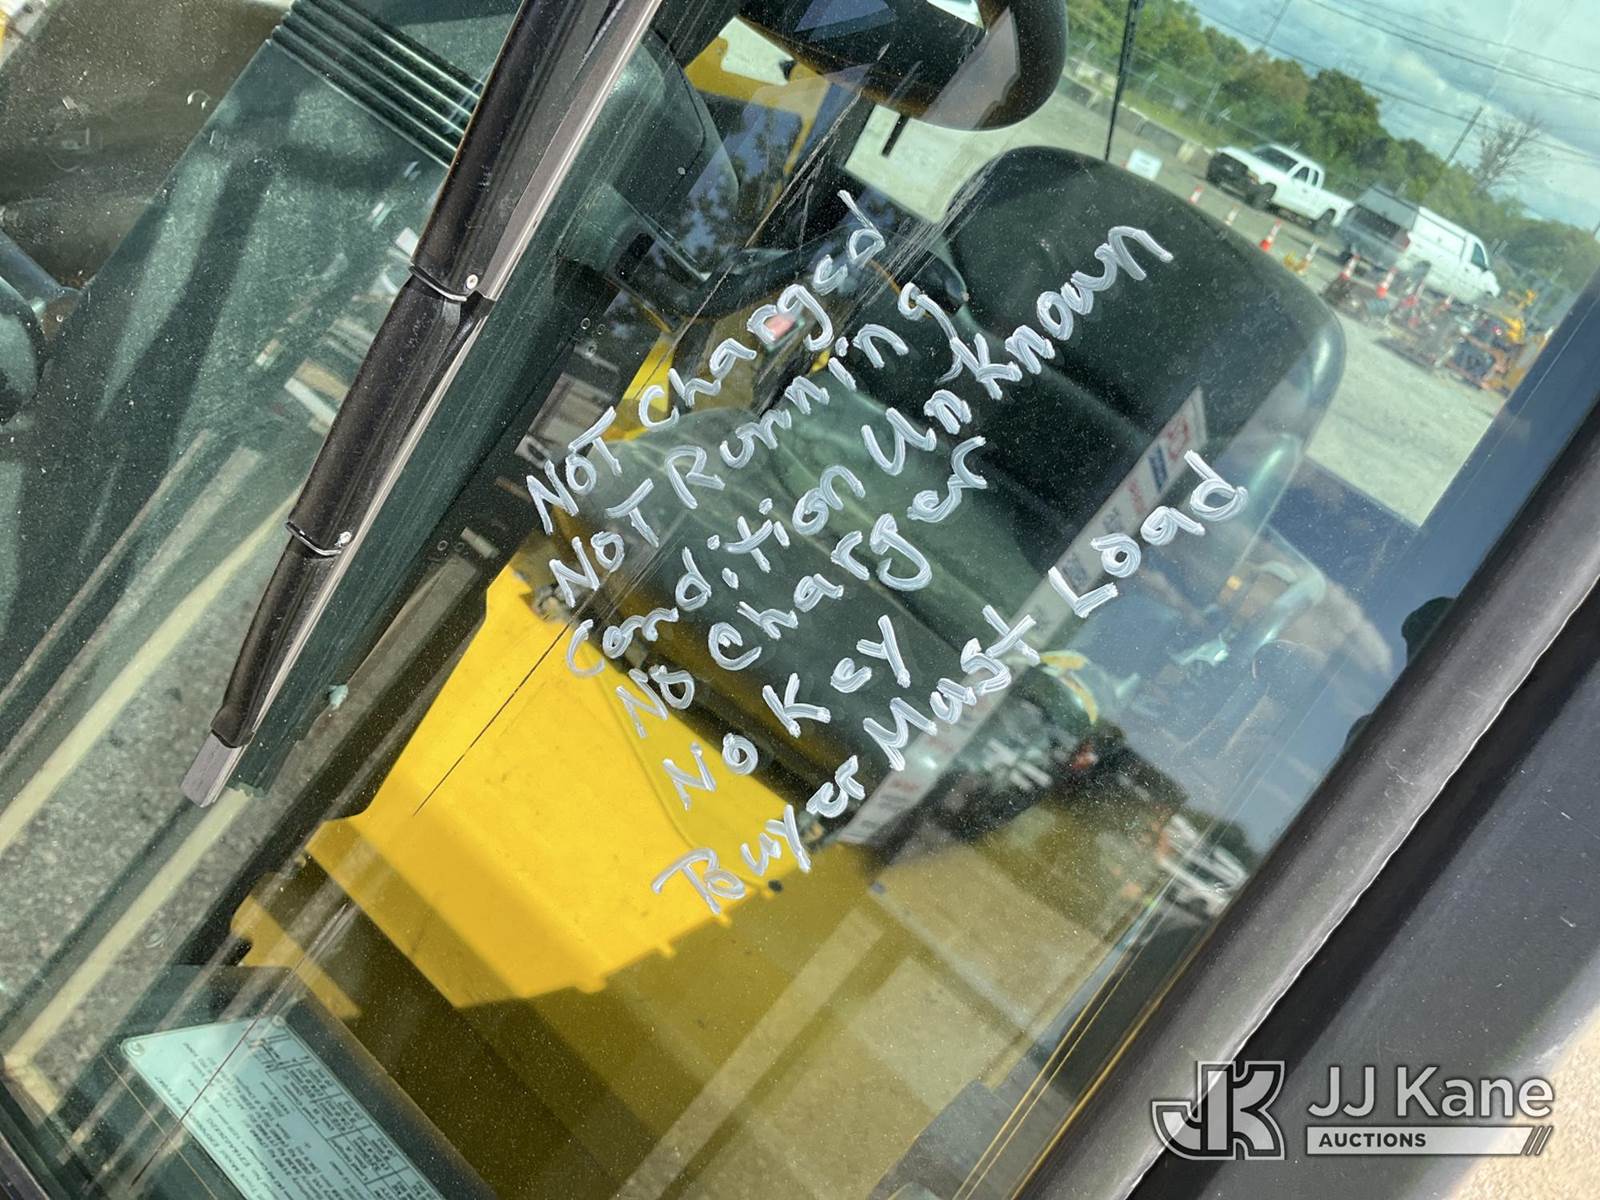 NOT Charged
NOT Running
Condition UnKnown
No Charger
No Key
Buyer Must Load
JK JJ Kane
AUCTIONS